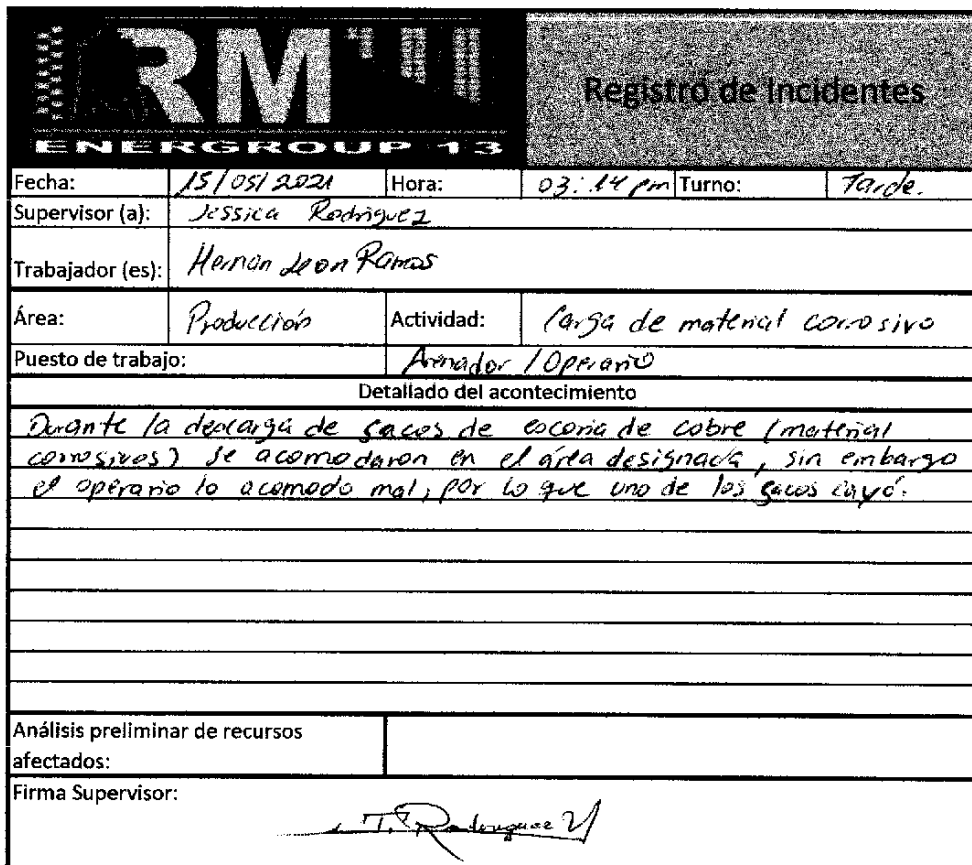 RM
ENERGROUP 13
Registro de Incidentes
Fecha: 15/05/2021 Hora: 03:14 pm Turno: Tarde.
Supervisor (a): Jessica Rodriguez
Trabajador (es): Hernan Leon Ramos
Área: Producción Actividad: Carga de material corrosivo
Puesto de trabajo: Arenador / Operario
Detallado del acontecimiento
Durante la descarga de sacos de escoria de cobre (material
corrosivos) se acomodaron en el área designada, sin embargo
el operario lo acomodo mal, por lo que uno de los sacos cayó.
Análisis preliminar de recursos
afectados:
Firma Supervisor:
Rodriguez